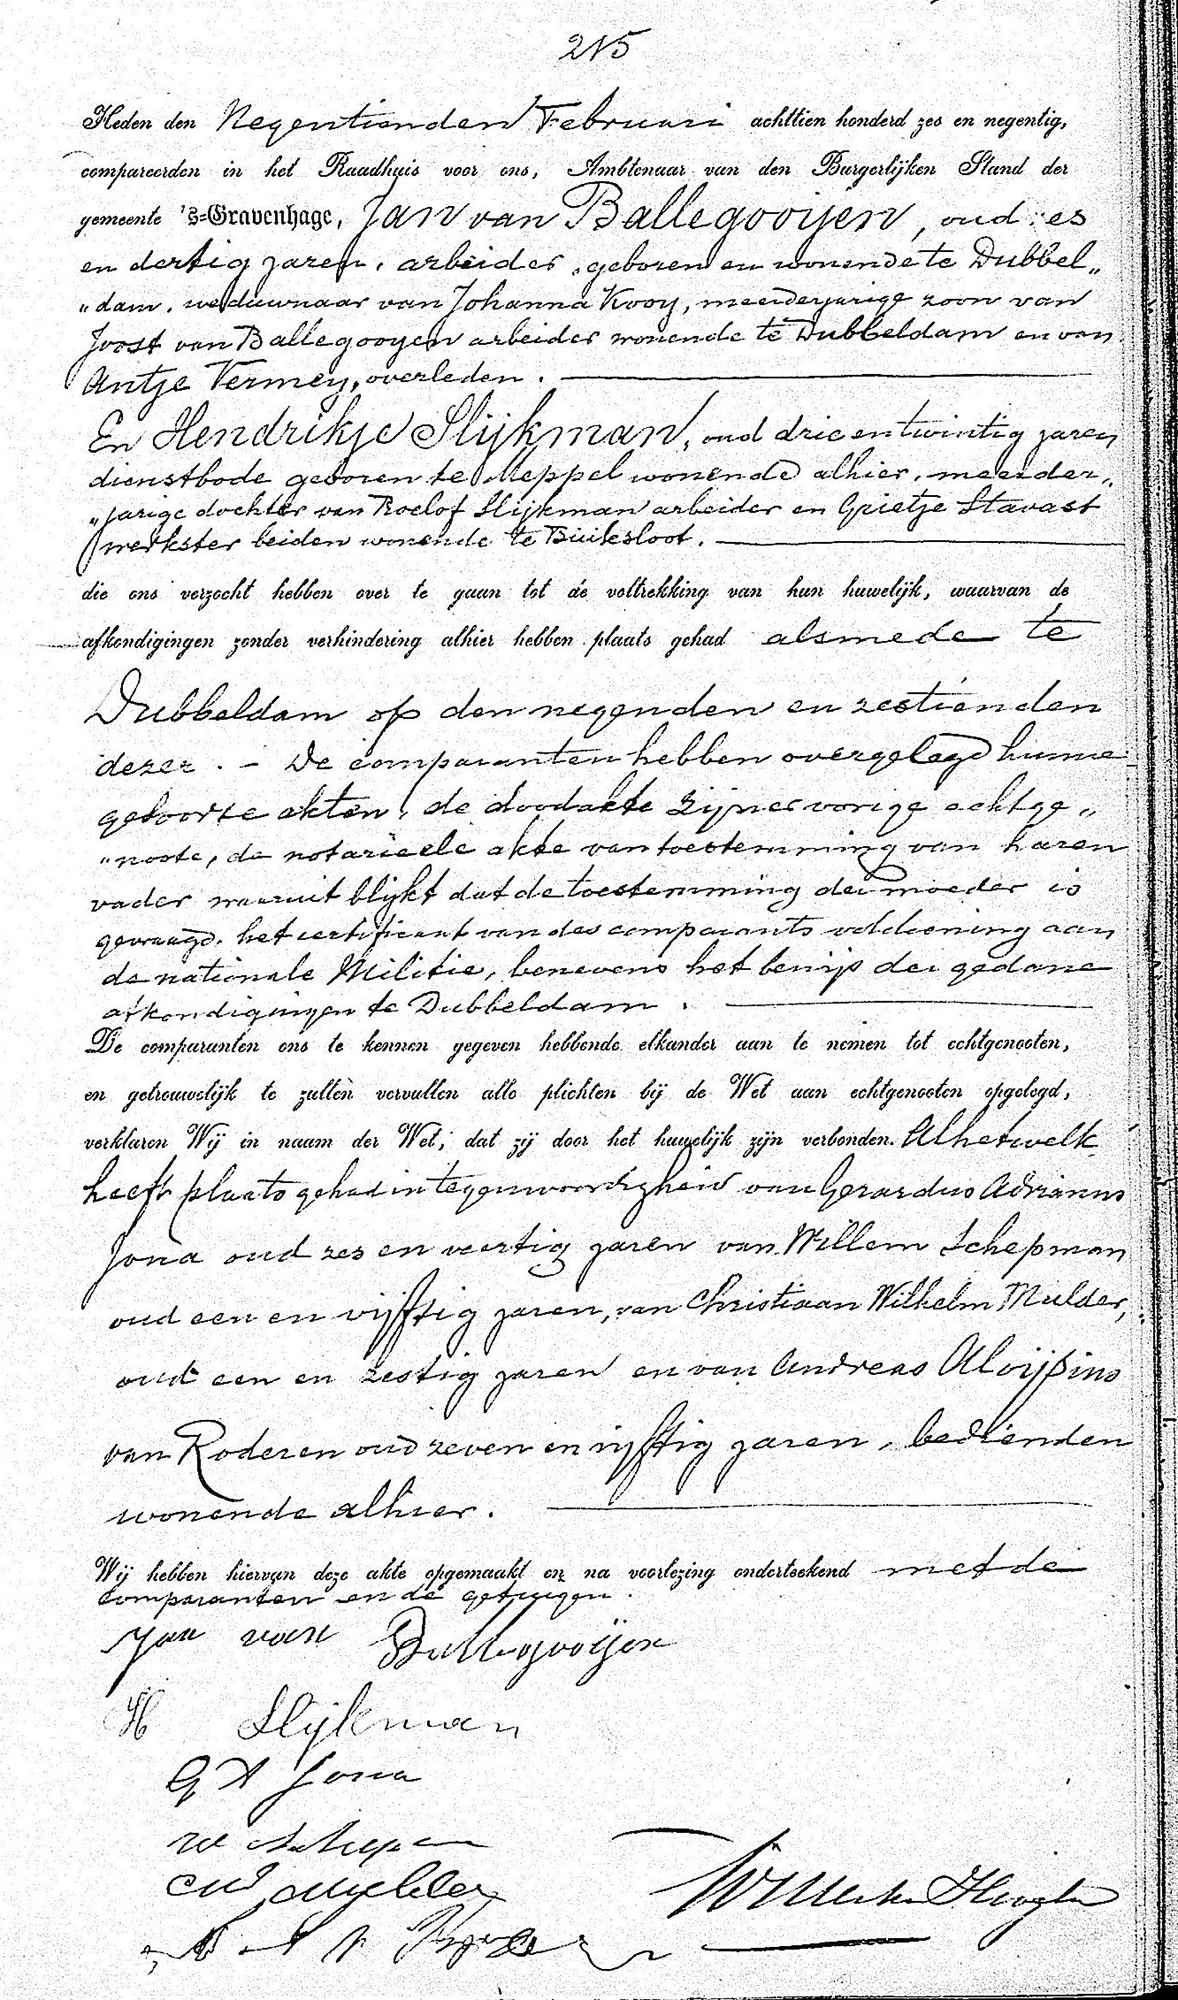 215
Heden den Negentienden Februari achttien honderd zes en negentig,
compareerden in het Raadhuis voor ons, Ambtenaar van den Burgerlijken Stand der
gemeente 's=Gravenhage, Jan van Ballegooijen, oud es
en dertig jaren, arbeider, geboren en wonende te Dubbel„
„dam, weduwnaar van Johanna Kooy, meerderjarige zoon van
Joost van Ballegooyen arbeider wonende te Dubbeldam en van
Antje Vermey, overleden.
En Hendrikje Slijkman, oud drie en twintig jaren
dienstbode geboren te Meppel wonende alhier, meerder„
„jarige dochter van Roelof Slijkman arbeider en Grietje Stavast
werkster beiden wonende te Buiksloot.
die ons verzocht hebben over te gaan tot de voltrekking van hun huwelijk, waarvan de
afkondigingen zonder verhindering alhier hebben plaats gehad alsmede te
Dubbeldam op den negenden en zestienden
dezer. – De comparanten hebben overgelegd hunne
geboorte akten, de doodakte zijner vorige echtge„
„noote, de notarieele akte van toestemming van haren
vader waaruit blijkt dat de toestemming der moeder is
gevraagd, het certificaat van des comparants voldoening aan
de nationale Militie, benevens het bewijs der gedane
afkondigingen te Dubbeldam.
De comparanten ons te kennen gegeven hebbende elkander aan te nemen tot echtgenooten,
en getrouwelijk te zullen vervullen alle plichten bij de Wet aan echtgenooten opgelegd,
verklaren Wij in naam der Wet, dat zij door het huwelijk zijn verbonden. Al hetwelk
heeft plaats gehad in tegenwoordigheid van Gerardus Adrianus
Jona oud zes en veertig jaren van Willem Schepman
oud een en vijftig jaren, van Christiaan Wilhelm Mulder,
oud een en zestig jaren en van Andreas Aloijsius
van Roderen oud zeven en vijftig jaren, bedienden
wonende alhier.
Wij hebben hiervan deze akte opgemaakt en na voorlezing onderteekend met de
comparanten en de getuigen.
Jan van Ballegooijen
H Slijkman
G A Jona
W